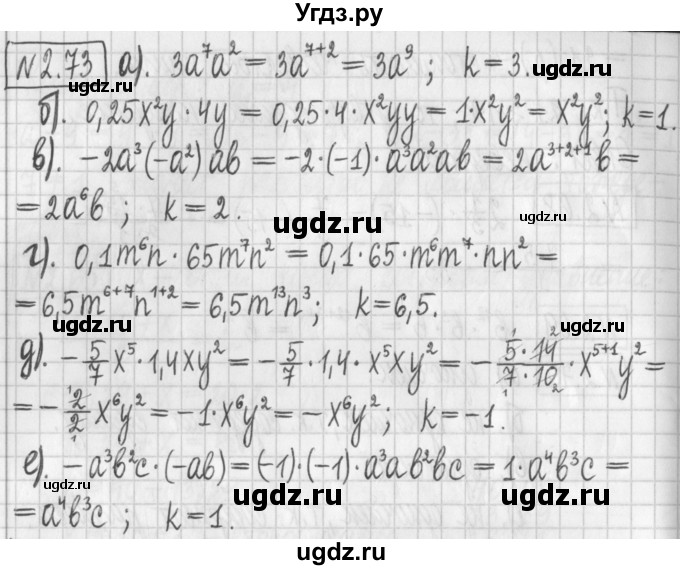 Угдз.ру
№2.73 а). 3a⁷a² = 3a⁷⁺² = 3a⁹ ; k = 3.
б). 0,25x²y · 4y = 0,25 · 4 · x²yy = 1·x²y² = x²y²; k = 1.
в). −2a³(−a²)ab = −2·(−1)·a³a²ab = 2a³⁺²⁺¹b =
= 2a⁶b ; k = 2.
ugdz.ru ugdz.ru
ugdz.ru
г). 0,1m⁶n · 65m⁷n² = 0,1 · 65 · m⁶m⁷ · nn² =
= 6,5m⁶⁺⁷n¹⁺² = 6,5m¹³n³; k = 6,5.
ugdz.ru
ugdz.ru
д). −5/7 x⁵ · 1,4xy² = −5/7 · 1,4 · x⁵xy² = −(5·14)/(7·10) · x⁵⁺¹y² =
= −2/2 x⁶y² = −1·x⁶y² = −x⁶y²; k = −1.
ugdz.ru
е). −a³b²c · (−ab) = (−1)·(−1)·a³ab²bc = 1·a⁴b³c =
ugdz.ru
ugdz.ru
ugdz.ru
= a⁴b³c ; k = 1.
ugdz.ru